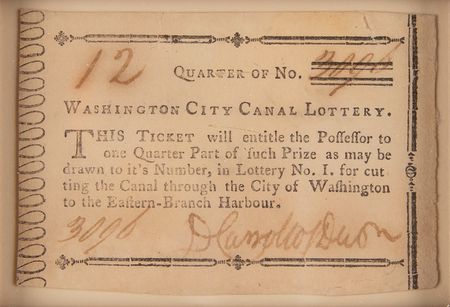 12 QUARTER OF No.
WASHINGTON CITY CANAL LOTTERY.
THIS TICKET will entitle the Poſſeſſor to
one Quarter Part of ſuch Prize as may be
drawn to it's Number, in Lottery No. I. for cut
ting the Canal through the City of Waſhington
to the Eaſtern-Branch Harbour.